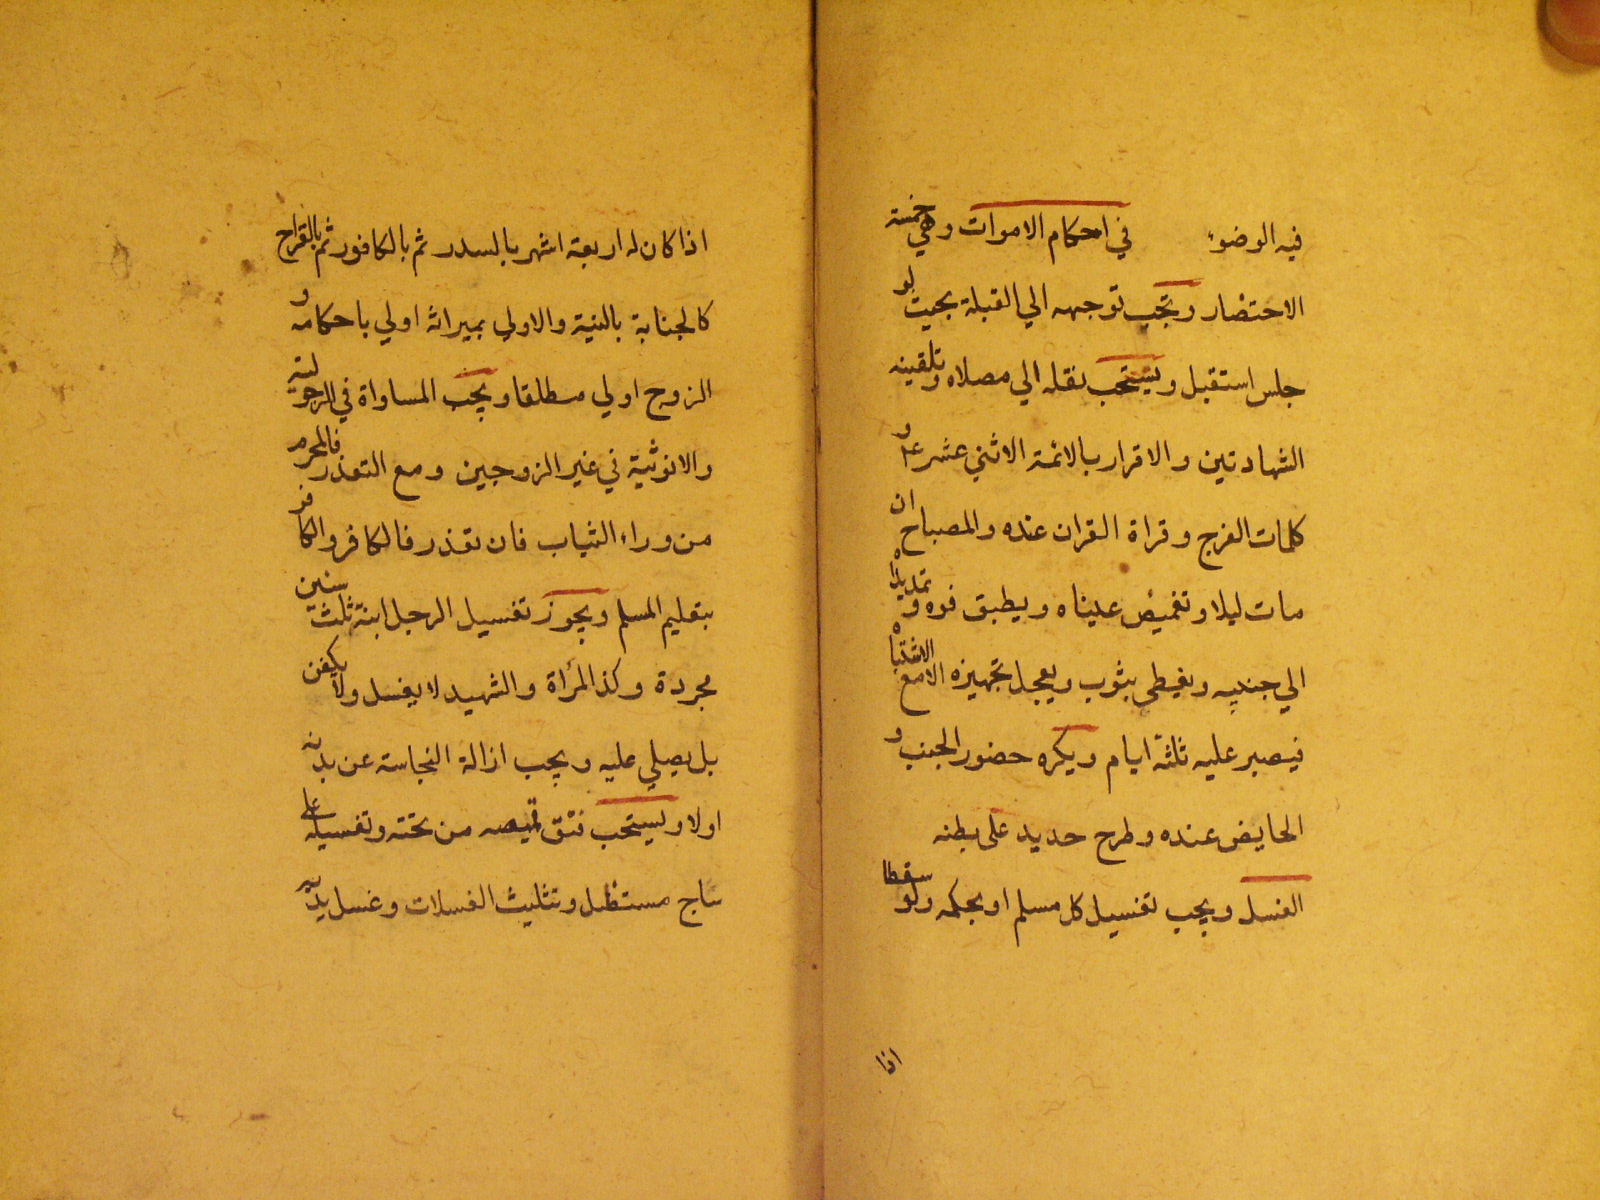 فيه الوضوء في احكام الاموات وهي خمسة
الاحتضار ويجب توجهه الي القبلة بحيث لو
جلس استقبل ويستحب نقله الي مصلاه وتلقينه
الشهادتين والاقرار بالائمة الاثني عشر ع و
كلمات الفرج وقراة القران عنده والمصباح ان
مات ليلا وتغميض عيناه ويطبق فوه و تمد يداه
الي جنبيه ويغطي بثوب ويعجل تجهيزه الا مع الاشتباه
فيصبر عليه ثلثة ايام ويكره حضور الجنب و
الحايض عنده وطرح حديد على بطنه
الغسل ويجب تغسيل كل مسلم او بحكمه ولو سقطا
اذا
اذا كان له اربعة اشهر بالسدر ثم بالكافور ثم بالقراح
كالجنابة بالنية والاولي بميراثه اولي باحكامه و
الزوج اولي مطلقا ويجب المساواة في الرجولية
والانوثية في غير الزوجين ومع التعذر فالمحرم
من وراء الثياب فان تعذر فالكافر والكافر
بتعليم المسلم ويجوز تغسيل الرجل ابنة ثلث سنين
مجردة وكذ المرأة والشهيد لا يغسل ولا يكفن
بل يصلي عليه ويجب ازالة النجاسة عن بدنه
اولا ويستحب فتق قميصه من تحته وتغسيله على
ساج مستظل وتثليث الغسلات وغسل يديه